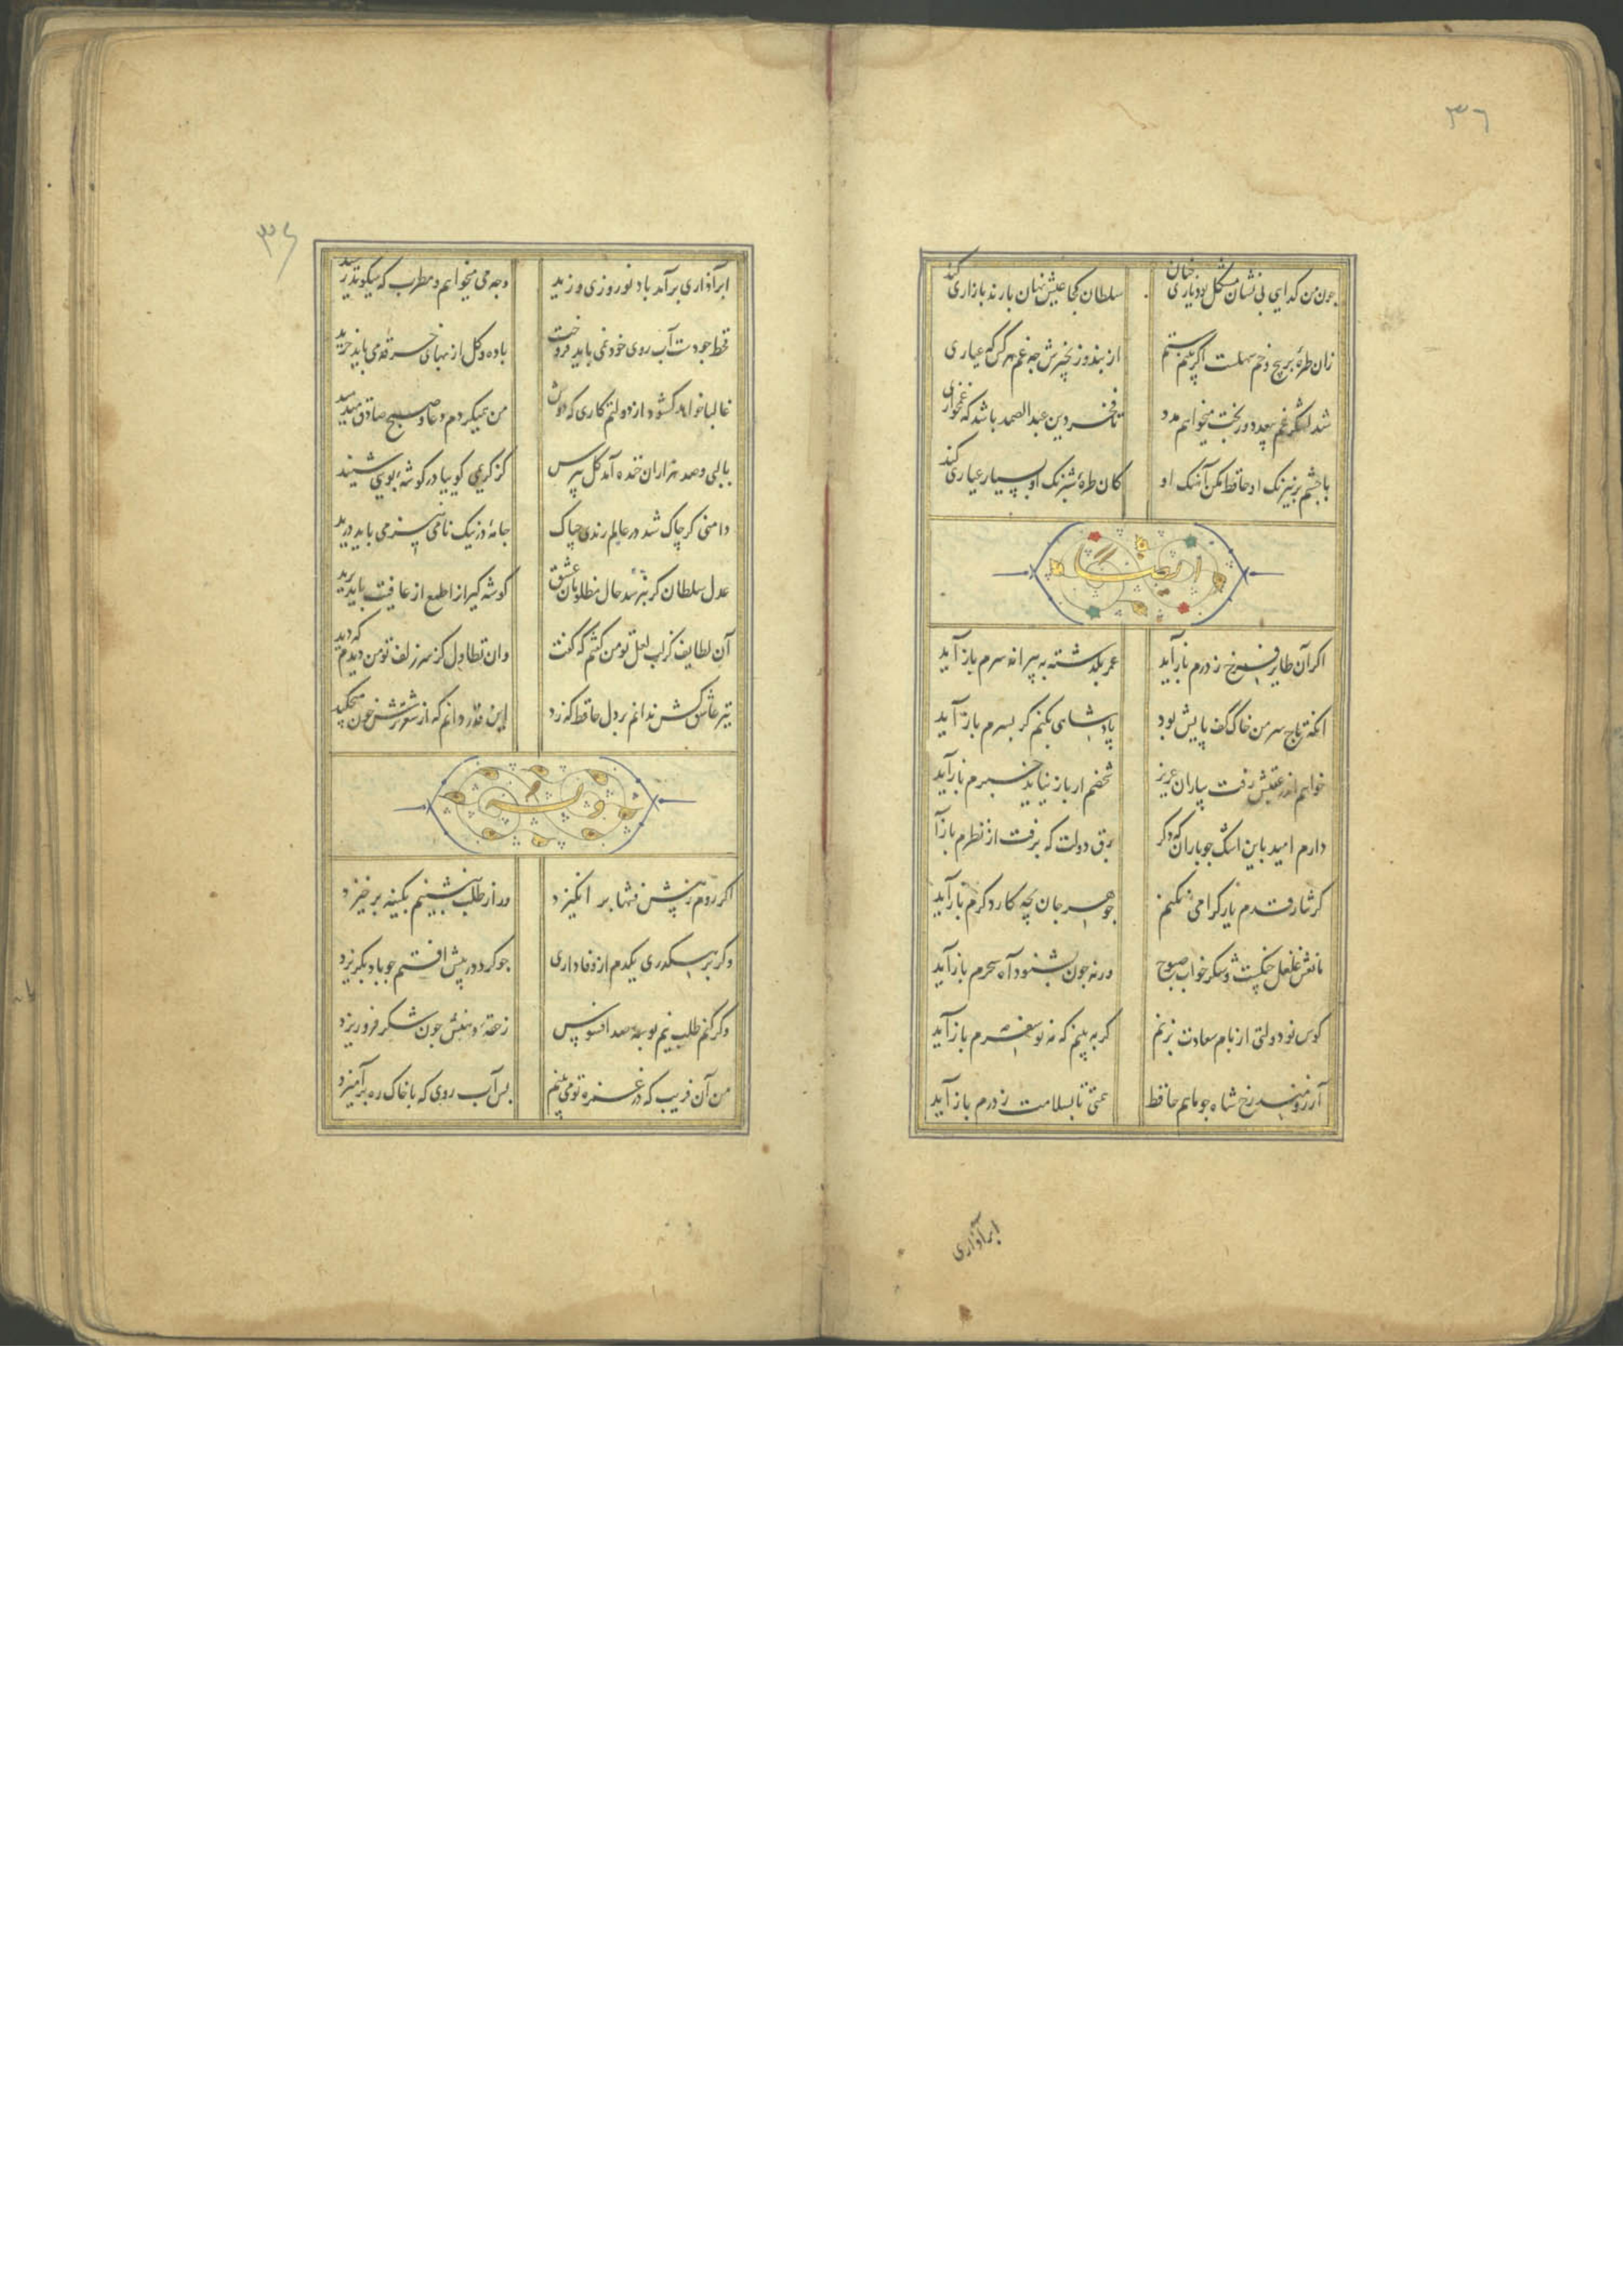 ۳۶
چون من کدایی بی نشان مشکل بود یاری چنان سلطان کجا عیش نهان با رند بازاری کند
زان طرهٔ پر پیچ و خم سهلست اکر بینم ستم از بند و زنجیرش چه غم هر کس که عیاری
شد لشکر غم بیعدد وز بخت میخواهم مدد تا فخر دین عبد الصمد باشد که غمخواری
با چشم پر نیرنک او حافظ مکن آهنک او کان طرهٔ شبرنک او بسیار عیاری کند
ایضا
اکر آن طایر فرخ ز درم باز آید عمر بکذشته به پیرانه سرم باز آید
انکه تاج سر من خاک کف پایش بود پادشاهی بکنم کر بسرم باز آید
خواهم اندر عقبش رفت بیاران عزیز شخصم ار باز نیاید خبرم باز آید
دارم امید باین اشک چو باران که دکر برق دولت که برفت از نظرم باز آ
کر نثار قدم یار کرامی نکنم جوهر جان بچه کار دکرم باز آید
مانعش غلغل چنکست و شکر خواب صبوح ورنه چون بشنود آه سحرم باز آید
کوس نو دولتی از بام سعادت بزنم کر به بینم که مه نو سفرم باز آید
آرزومند رخ شاه چو ماهم حافظ همتی تا بسلامت ز درم باز آید
ابر آذاری
ابر آذاری برآمد باد نوروزی وزید وجه می میخواهم و مطرب که میکوید رسید
قحط جودست آب روی خود نمی باید فروخت باده و کل از بهای خرقه می باید خرید
غالبا خواهد کشود از دولتم کاری که دوش من همیکردم دعا و صبح صادق میدمید
بالبی و صد هزاران خنده آمد کل پرس کز کریمی کوییا در کوشهٔ بویی شنید
دامنی کر چاک شد در عالم رندی چه باک جامهٔ در نیک نامی نیز می باید درید
عدل سلطان کر نپرسد حال مظلومان عشق کوشه کیرانرا طمع از عافیت باید برید
آن لطایف کز لب لعل تو من کفتم که کفت وان تطاول کز سر زلف تو من دیدم که دید
تیر عاشق کش ندانم بر دل حافظ که زد این قدر دانم که از شعر ترش خون میچکید
وله
اکر روم ز پیش فتنها بر انکیزد ور از طلب بنشینم بکینه برخیزد
وکر برهکذری یکدم از وفاداری چو کرد در پیش افتم چو باد بکریزد
وکر کنم طلب نیم بوسهٔ صد افسوس ز حقهٔ دهنش چون شکر فرو ریزد
من آن فریب که در غمزه تو می بینم بس آب روی که با خاک ره برآمیزد